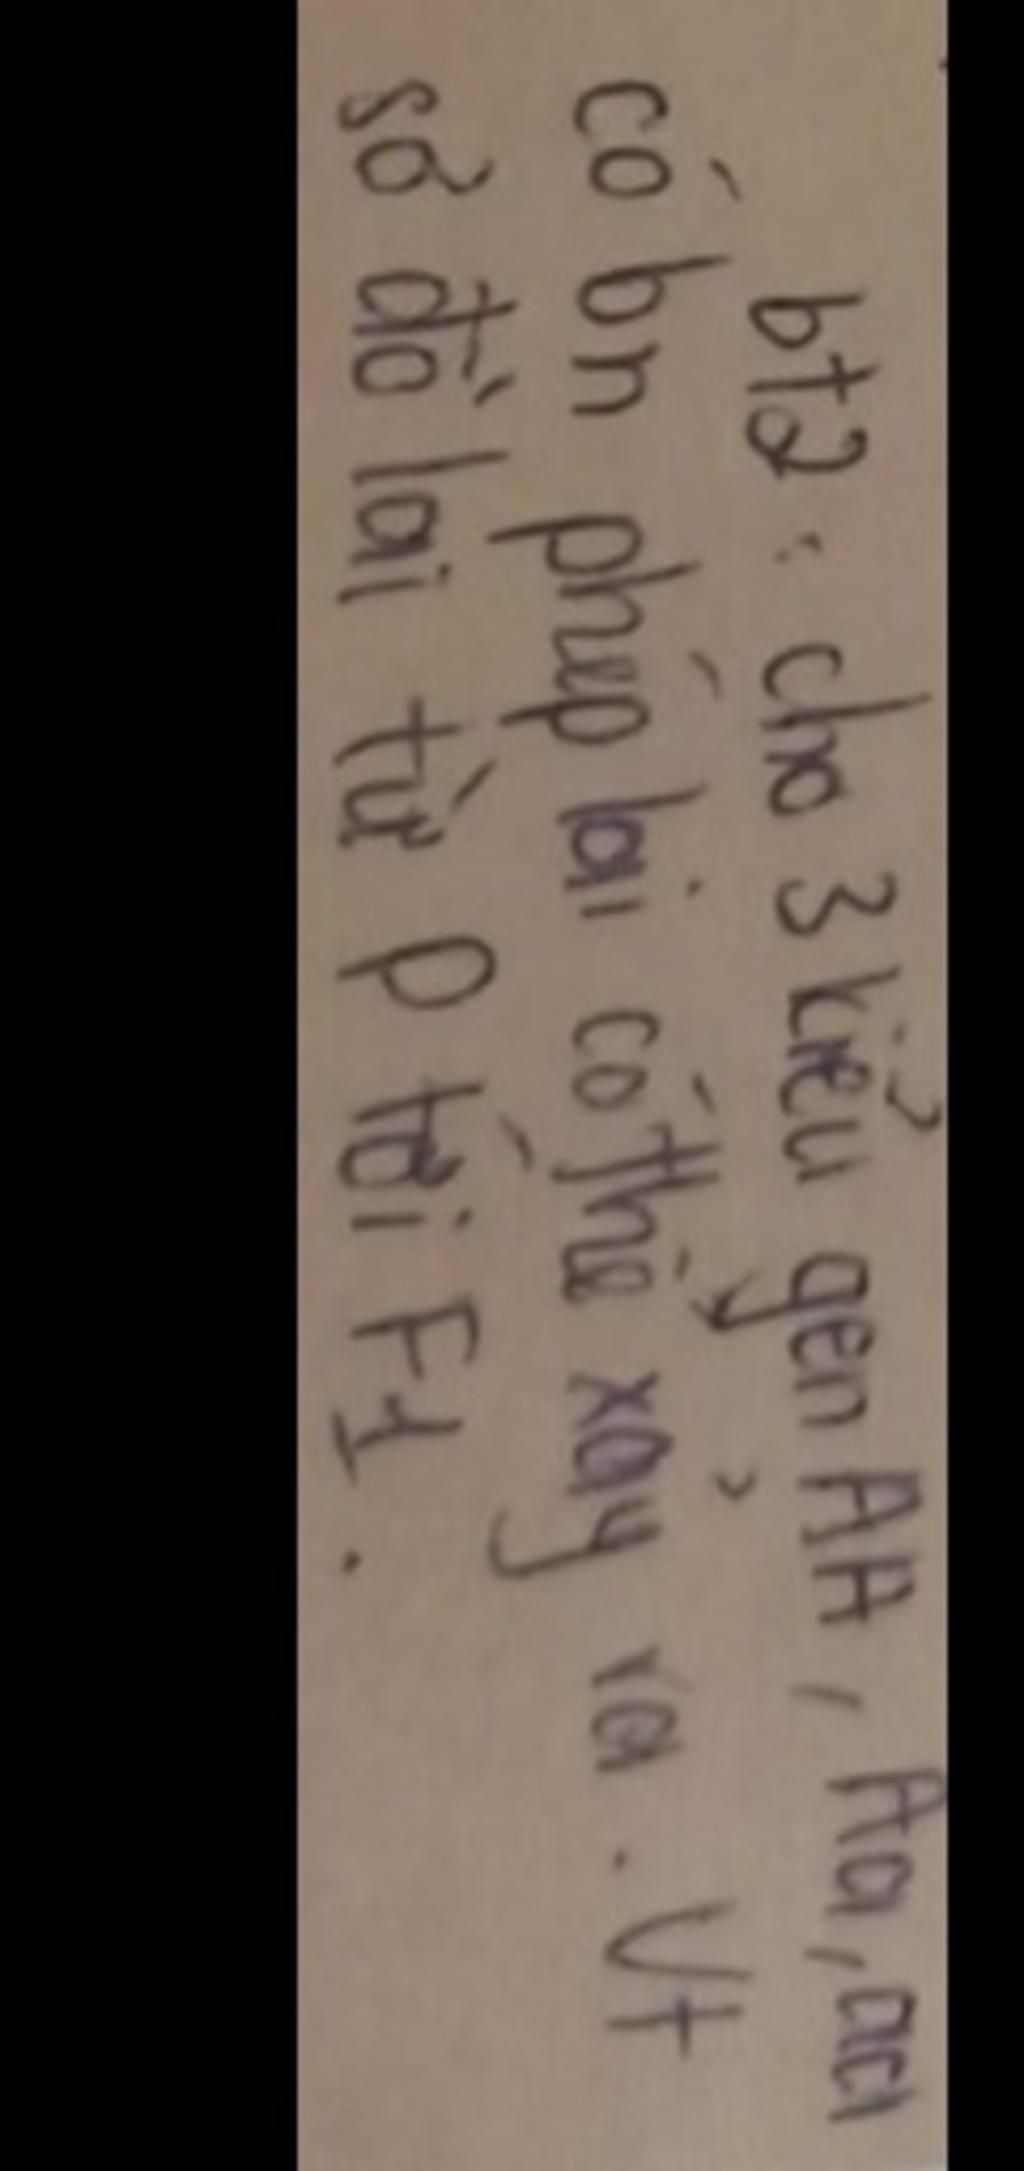 bt2: cho 3 kiểu gen AA, Aa, aa
có bn phép lai có thể xảy ra. Vt
sơ đồ lai từ P tới F1.